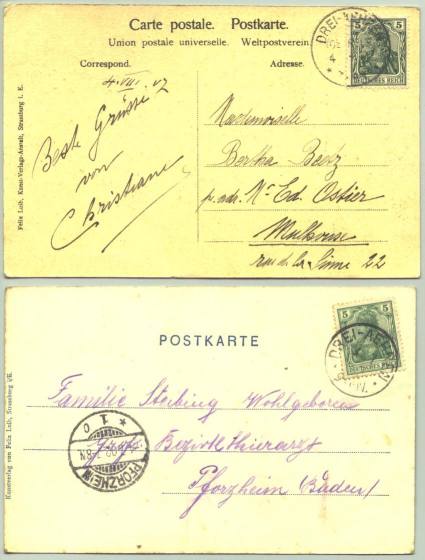 Carte postale. Postkarte.
Union postale universelle. Weltpostverein.
Correspond. Adresse.
4. VIII. 07
Beste Grüsse
von
Christiane
Mademoiselle
Bertha
p. adr. Mr Ed. Ostier
Mulhouse
rue de la 22
5 5
DEUTSCHES REICH
DREI-AEHREN
Felix Luib, Kunst-Verlags-Anstalt, Strassburg i. E.
POSTKARTE
5 5
DEUTSCHES REICH
DREI-AEHREN
Familie Wohlgeboren
Bezirkthierarzt
Pforzheim (Baden)
PFORZHEIM
Kunstverlag von Felix Luib, Strassburg i/E.